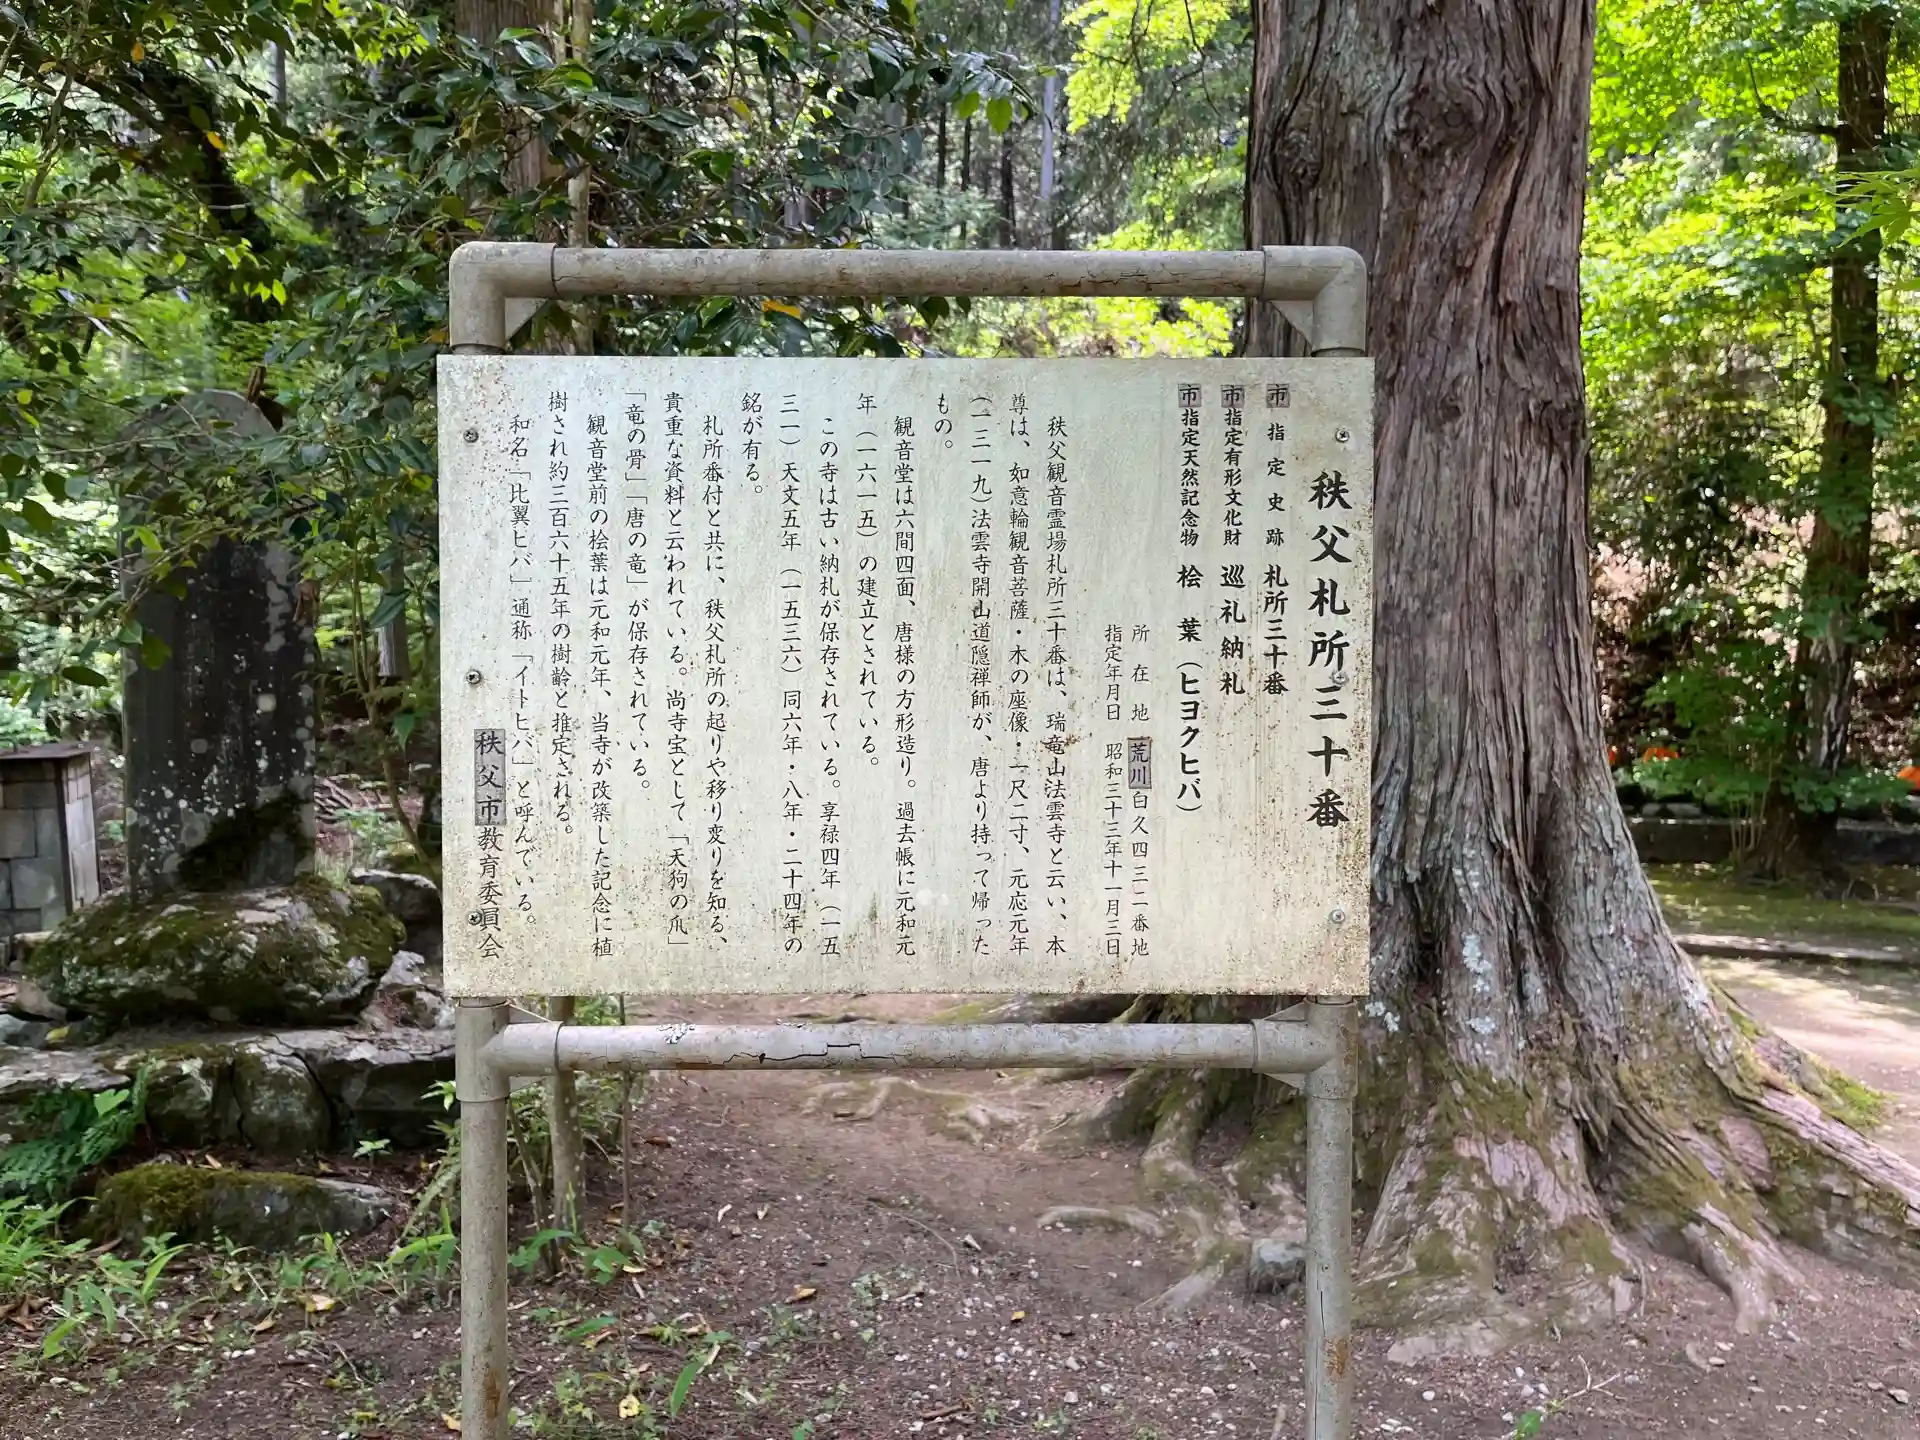 秩父札所三十番
市指定史跡 札所三十番
市指定有形文化財 巡礼納札
市指定天然記念物 桧葉（ヒヨクヒバ）
所在地 荒川白久四三一番地
指定年月日 昭和三十三年十一月三日
秩父観音霊場札所三十番は、瑞竜山法雲寺と云い、本
尊は、如意輪観音菩薩・木の座像・一尺二寸、元応元年
（一三一九）法雲寺開山道隠禅師が、唐より持って帰った
もの。
観音堂は六間四面、唐様の方形造り。過去帳に元和元
年（一六一五）の建立とされている。
この寺は古い納札が保存されている。享禄四年（一五
三一）天文五年（一五三六）同六年・八年・二十四年の
銘が有る。
札所番付と共に、秩父札所の起りや移り変りを知る、
貴重な資料と云われている。尚寺宝として「天狗の爪」
「竜の骨」「唐の竜」が保存されている。
観音堂前の桧葉は元和元年、当寺が改築した記念に植
樹され約三百六十五年の樹齢と推定される。
和名「比翼ヒバ」通称「イトヒバ」と呼んでいる。
秩父市教育委員会